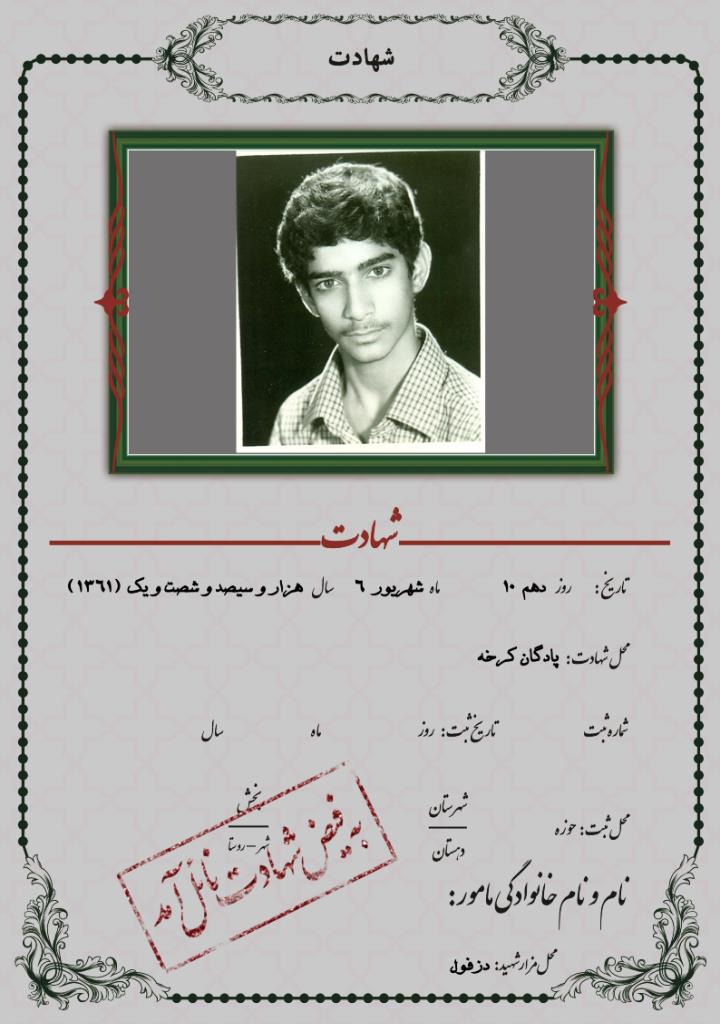 شهادت
شهادت
تاریخ: روز دهم ۱۰ ماه شهریور ۶ سال هزار و سیصد و شصت و یک (۱۳۶۱)
محل شهادت: پادگان کرخه
شماره ثبت تاریخ ثبت: روز ماه سال
محل ثبت: حوزه شهرستان بخش
دهستان شهر-روستا
به فیض شهادت نائل آمد
نام و نام خانوادگی مامور:
محل مزار شهید: دزفول